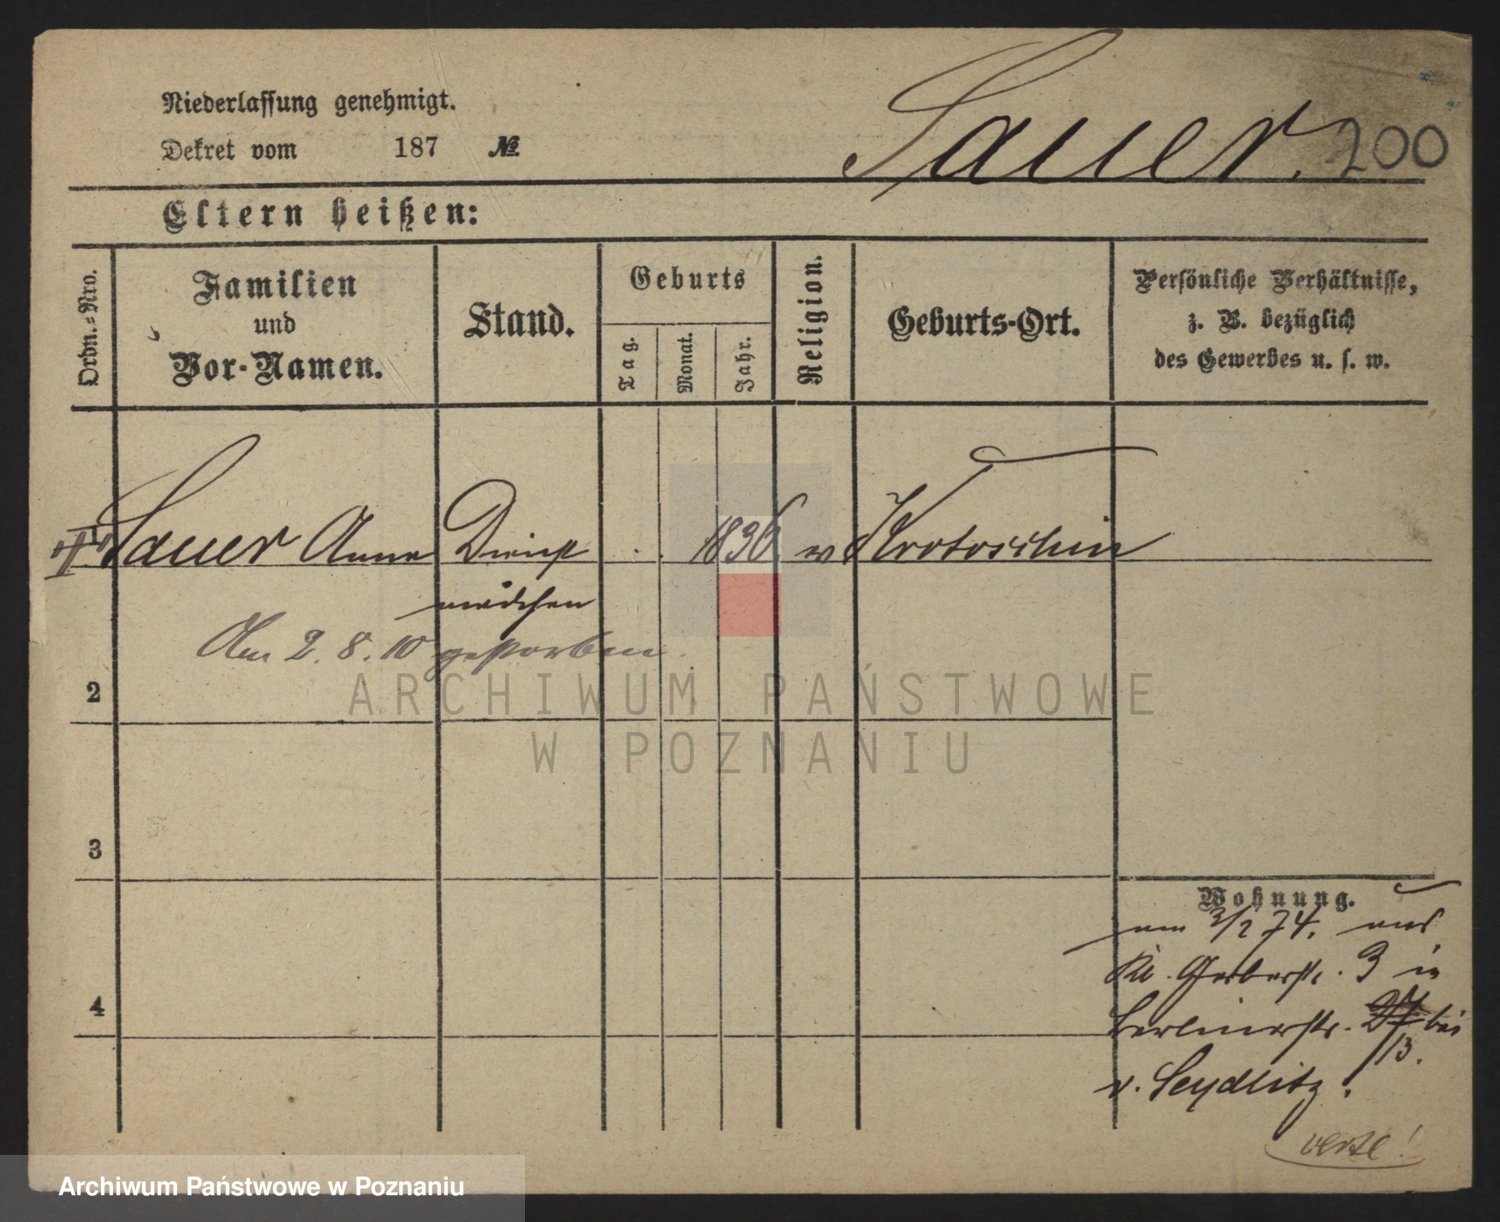 Niederlassung genehmigt.
Dekret vom 187 №
Sauer. 200
Eltern heißen:
Ordn.-Nro.
Familien
und
Vor-Namen.
Stand.
Geburts
Tag.
Monat.
Jahr.
Religion.
Geburts-Ort.
Persönliche Verhältnisse,
z. B. bezüglich
des Gewerbes u. s. w.
Sauer Anna Dienst . . 1836 Krotoschin
mädchen
Am 2. 8. 10 gestorben.
2
ARCHIWUM PAŃSTWOWE
W POZNANIU
3
Wohnung.
am 3/2 74. aus
Kl. Gerberstr. 3 in
4
Berlinerstr. bei
13.
v. Seydlitz.
verte!
Archiwum Państwowe w Poznaniu